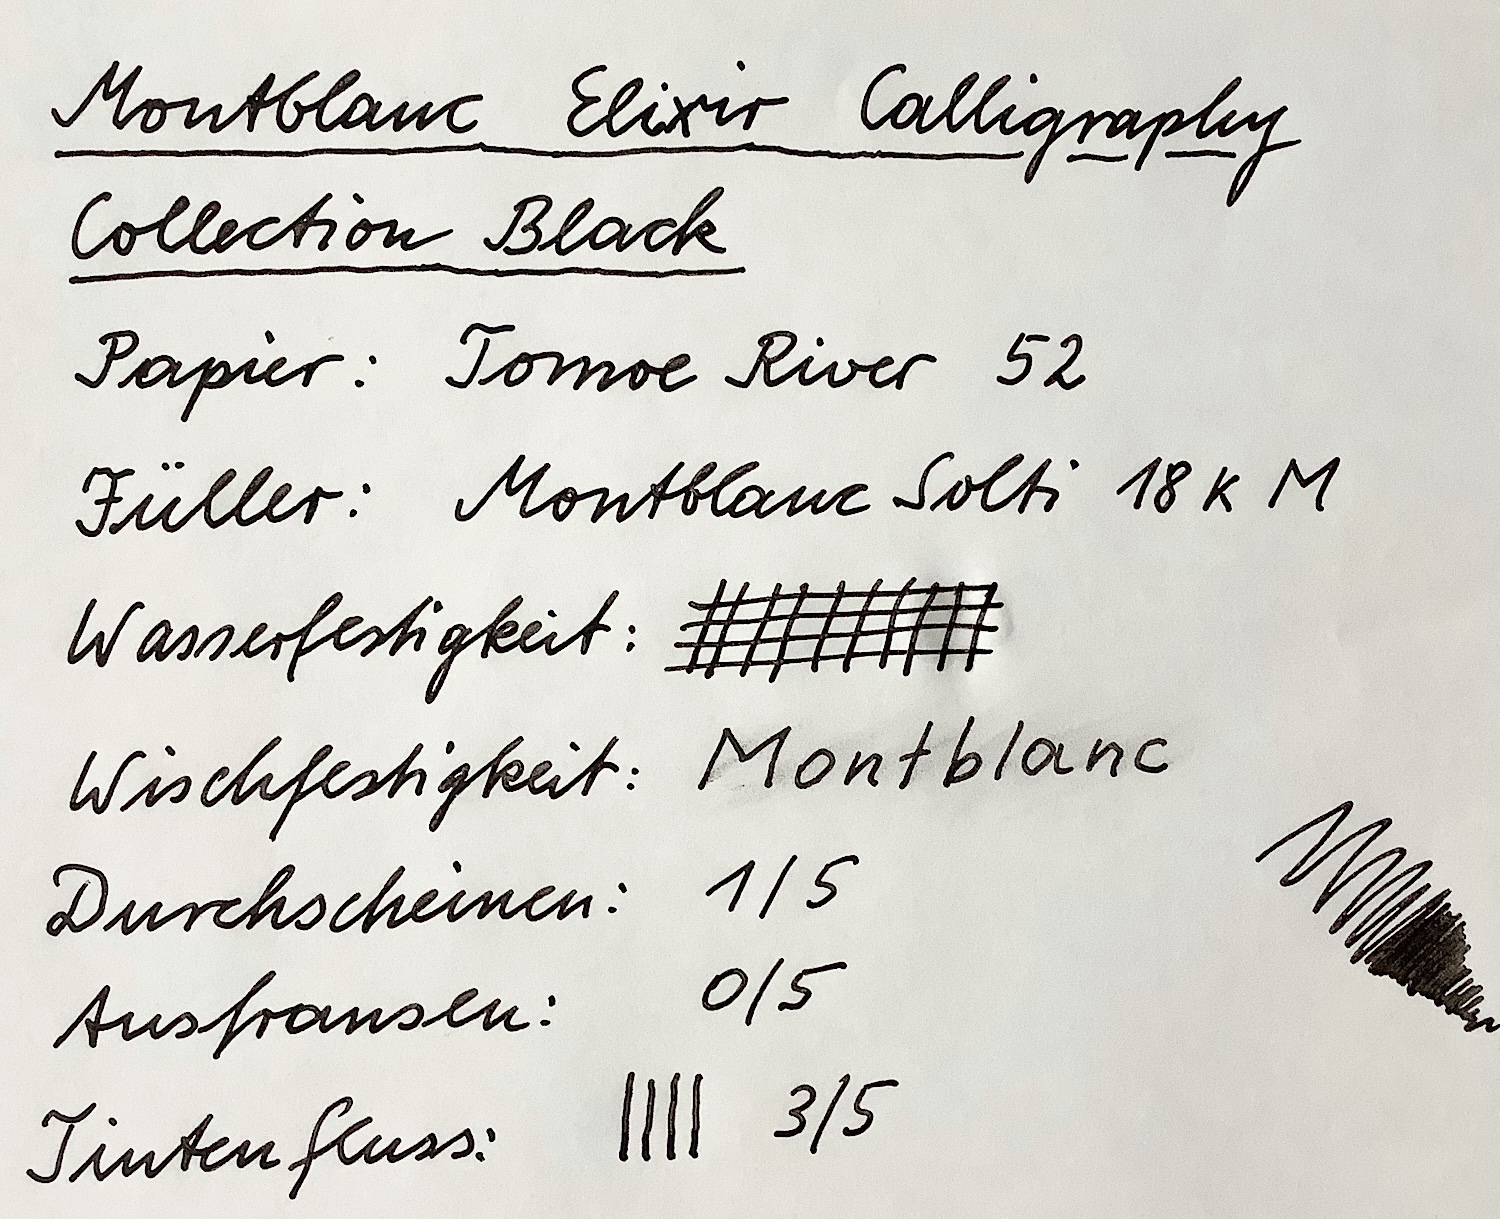 Montblanc Elixir Calligraphy
Collection Black
Papier: Tomoe River 52
Füller: Montblanc Solti 18K M
Wasserfestigkeit:
Wischfestigkeit: Montblanc
Durchscheinen: 1/5
Ausfransen: 0/5
Tintenfluss: 3/5